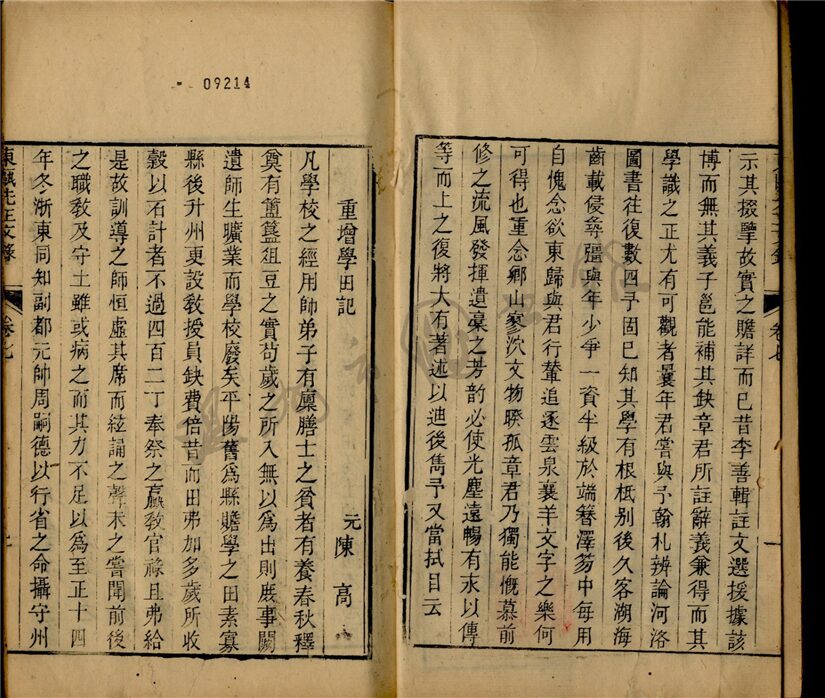 示其掇擥故實之贍詳而已昔李善輯註文選援據該
博而無其義子邕能補其缺章君所註辭義兼得而其
學識之正尤有可觀者曩年君嘗與予翰札辨論河洛
圖書往復數四予固已知其學有根柢别後久客湖海
齒載侵尋彊與年少爭一資半級於端簪澤笏中每用
自愧念欲東歸與君行輦追逐雲泉襄羊文字之樂何
可得也重念鄉山寥沈文物暌孤章君乃獨能慨慕前
修之流風發揮遺稾之芳韵必使光塵遠暢有永以傳
等而上之復將大有著述以迪後雋予又當拭目云
卷七
一
09214
重增學田記
元陳高
凡學校之經用師弟子有廩膳士之貧者有養春秋釋
奠有簠簋俎豆之實苟歲之所入無以為出則庶事闕
遺師生曠業而學校廢矣平陽舊為縣贍學之田素寡
縣後升州更設教授員缺費倍昔而田弗加多歲所收
穀以石計者不過四百二丁奉祭之羸教官祿且弗給
是故訓導之師恒虛其席而絃誦之聲未之嘗聞前後
之職教及守土雖或病之而其力不足以為至正十四
年冬浙東同知副都元帥周嗣德以行省之命攝守州
東甌先正文錄
卷七